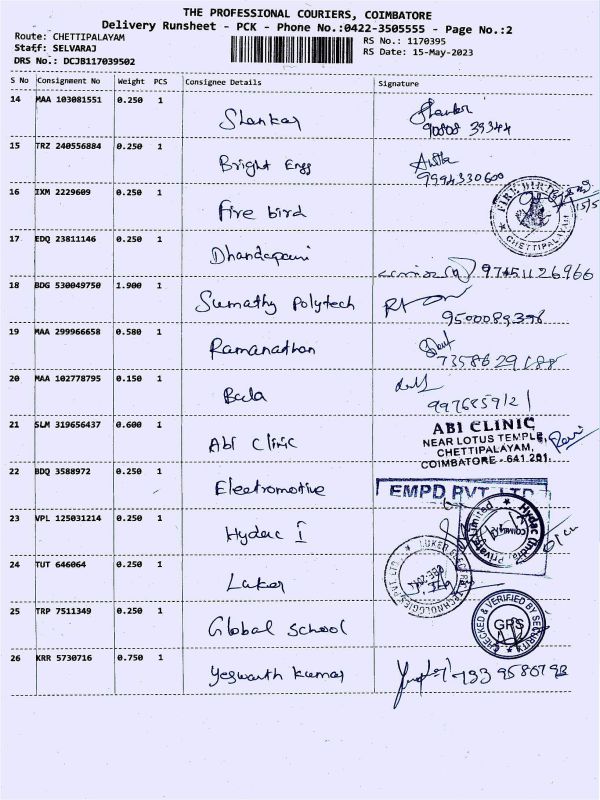 THE PROFESSIONAL COURIERS, COIMBATORE
Delivery Runsheet - PCK - Phone No.:0422-3505555 - Page No.:2
Route: CHETTIPALAYAM
RS No.: 1170395
Staff: SELVARAJ
RS Date: 15-May-2023
DRS No.: DCJB117039502
S No Consignment No Weight PCS Consignee Details Signature
14 MAA 103081551 0.250 1 Shankar
90808 39344
15 TRZ 240556884 0.250 1 Bright Engg Anita
9994330600
16 IXM 2229609 0.250 1 Fire bird FIRE BIRD CHETTIPALAYAM 15/5
17 EDQ 23811146 0.250 1 Dhandapani 97451126966
18 BDG 530049750 1.900 1 Sumathy Polytech
9500089398
19 MAA 299966658 0.580 1 Ramanathan
7358629188
20 MAA 102778795 0.150 1 Bala
9976859121
21 SLM 319656437 0.600 1 Abi Clinic ABI CLINIC
NEAR LOTUS TEMPLE, Ravi
CHETTIPALAYAM,
COIMBATORE - 641 201.
22 BDQ 3588972 0.250 1 Electromotive EMPD PVT LTD
23 VPL 125031214 0.250 1 Hydac I Hydac (India) Private Limited
24 TUT 646064 0.250 1 Laker
25 TRP 7511349 0.250 1 Global School CHECKED & VERIFIED BY SECURITY GPS
26 KRR 5730716 0.750 1 Yeswanth Kumar 7339586793